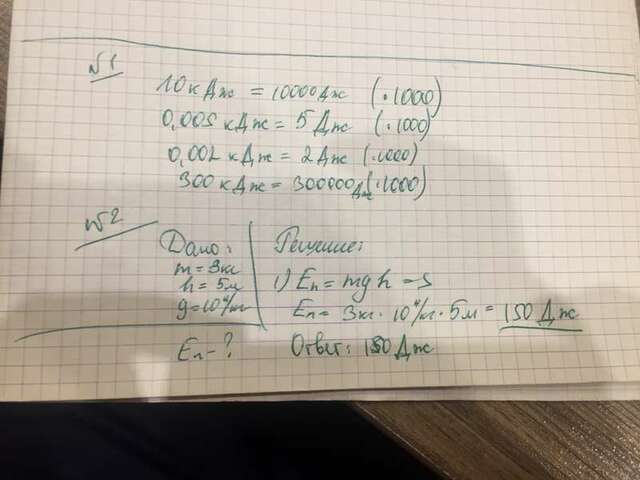 №1
10кДж = 10000Дж (·1000)
0,005 кДж = 5 Дж (·1000)
0,002 кДж = 2 Дж (·1000)
300 кДж = 300000 Дж (·1000)
№2
Дано:
m = 3кг
h = 5м
g = 10 Н/кг
Eп - ?
Решение:
1) Eп = mgh →
Eп = 3кг · 10 Н/кг · 5м = 150 Дж
Ответ: 150 Дж